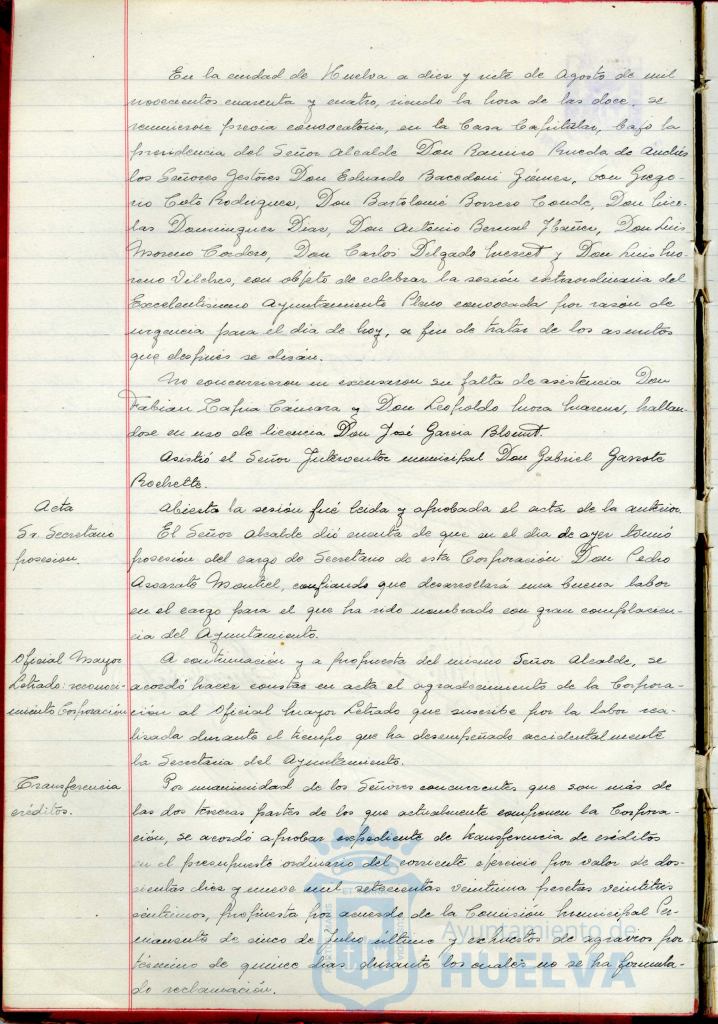 En la ciudad de Huelva a diez y siete de Agosto de mil
novecientos cuarenta y cuatro, siendo la hora de las doce, se
reunieron previa convocatoria, en la Casa Capitular, bajo la
presidencia del Señor Alcalde Don Ramiro Rueda de Andrés
los Señores Gestores Don Eduardo Bacedoni Giémez, Don Grego-
rio Ceto Rodriguez, Don Bartolomé Borrero Conde, Don Nico-
las Dominguez Diaz, Don Antonio Bernal Ibañez, Don Luis
Moreno Cordero, Don Carlos Delgado y Don Luis Mo-
reno Vilches, con objeto de celebrar la sesión extraordinaria del
Excelentísimo Ayuntamiento Pleno convocada por razón de
urgencia para el dia de hoy, a fin de tratar de los asuntos
que después se dirán.
No concurrieron ni excusaron su falta de asistencia Don
Fabian Tapia Cámara y Don Leopoldo Mora, hallan-
dose en uso de licencia Don José Garcia Blount.
Asistió el Señor Interventor municipal Don Gabriel Garrote
Rochette.
Acta
Abierta la sesión fué leida y aprobada el acta de la anterior.
Sr. Secretario
posesion.
El Señor Alcalde dió cuenta de que en el dia de ayer tomó
posesión del cargo de Secretario de esta Corporación Don Pedro
Ascarate Montiel, confiando que desarrollará una buena labor
en el cargo para el que ha sido nombrado con gran complacen-
cia del Ayuntamiento.
Oficial Mayor
Letrado: reconoci-
miento Corporación
A continuación y a propuesta del mismo Señor Alcalde, se
acordó hacer constar en acta el agradecimiento de la Corpora-
ción al Oficial Mayor Letrado que suscribe por la labor rea-
lizada durante el tiempo que ha desempeñado accidentalmente
la Secretaria del Ayuntamiento.
Transferencia
créditos.
Por unanimidad de los Señores concurrentes que son más de
las dos terceras partes de los que actualmente componen la Corpora-
ción, se acordó aprobar expediente de transferencia de créditos
en el presupuesto ordinario del corriente ejercicio por valor de dos-
cientas diez y nueve mil setecientas veintiuna pesetas veintitres
centimos, propuesta por acuerdo de la Comisión Municipal Per-
manente de cinco de Julio último y expuesto de agravios por
término de quince dias durante los cuales no se ha formula-
do reclamación.
Ayuntamiento de
HUELVA